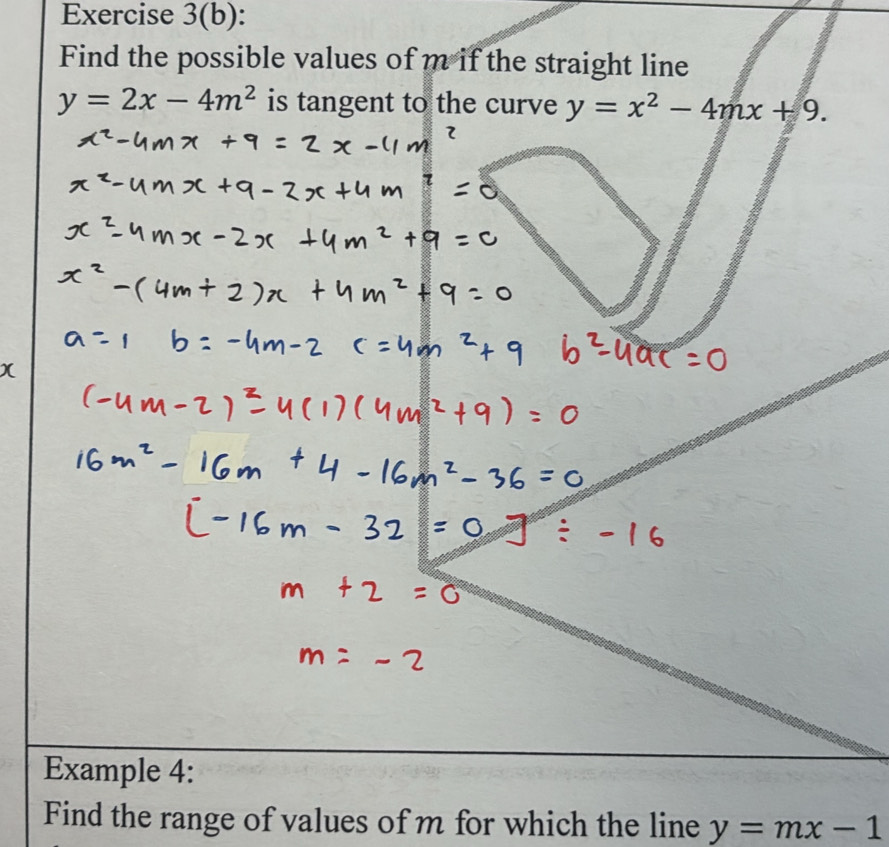 Exercise 3(b):
Find the possible values of m if the straight line
y = 2x − 4m² is tangent to the curve y = x² − 4mx + 9.
x² - 4mx + 9 = 2x - 4m²
x² - 4mx + 9 - 2x + 4m² = 0
x² - 4mx - 2x + 4m² + 9 = 0
x² - (4m + 2)x + 4m² + 9 = 0
a = 1 b = -4m - 2 c = 4m² + 9 b² - 4ac = 0
x
(-4m - 2)² - 4(1)(4m² + 9) = 0
16m² - 16m + 4 - 16m² - 36 = 0
[-16m - 32 = 0] ÷ -16
m + 2 = 0
m = -2
Example 4:
Find the range of values of m for which the line y = mx − 1